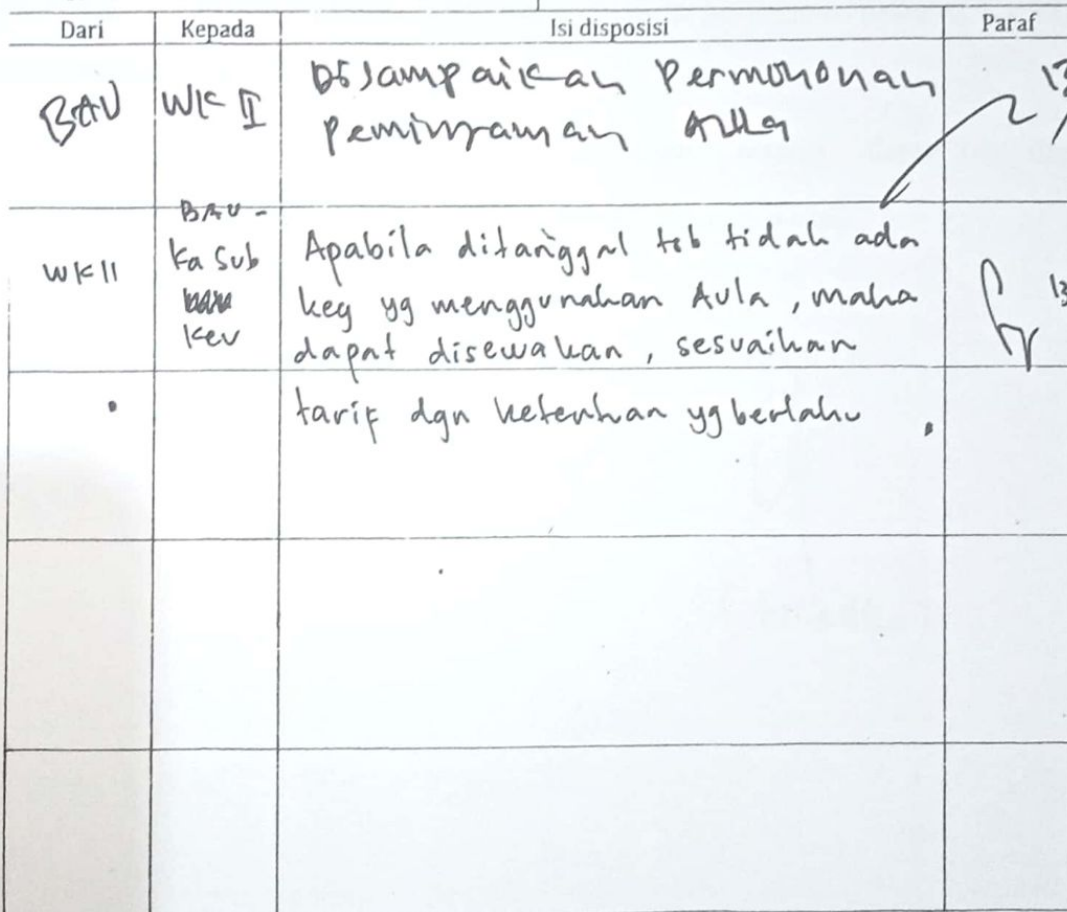 Dari Kepada Isi disposisi Paraf
BAU WK II Disampaikan Permohonan
Peminjaman Aula
BAU -
WK II Ka Sub Apabila ditanggal tsb tidak ada
Keu keg yg menggunakan Aula, maka
dapat disewakan, sesuaikan
tarif dgn ketentuan yg berlaku.